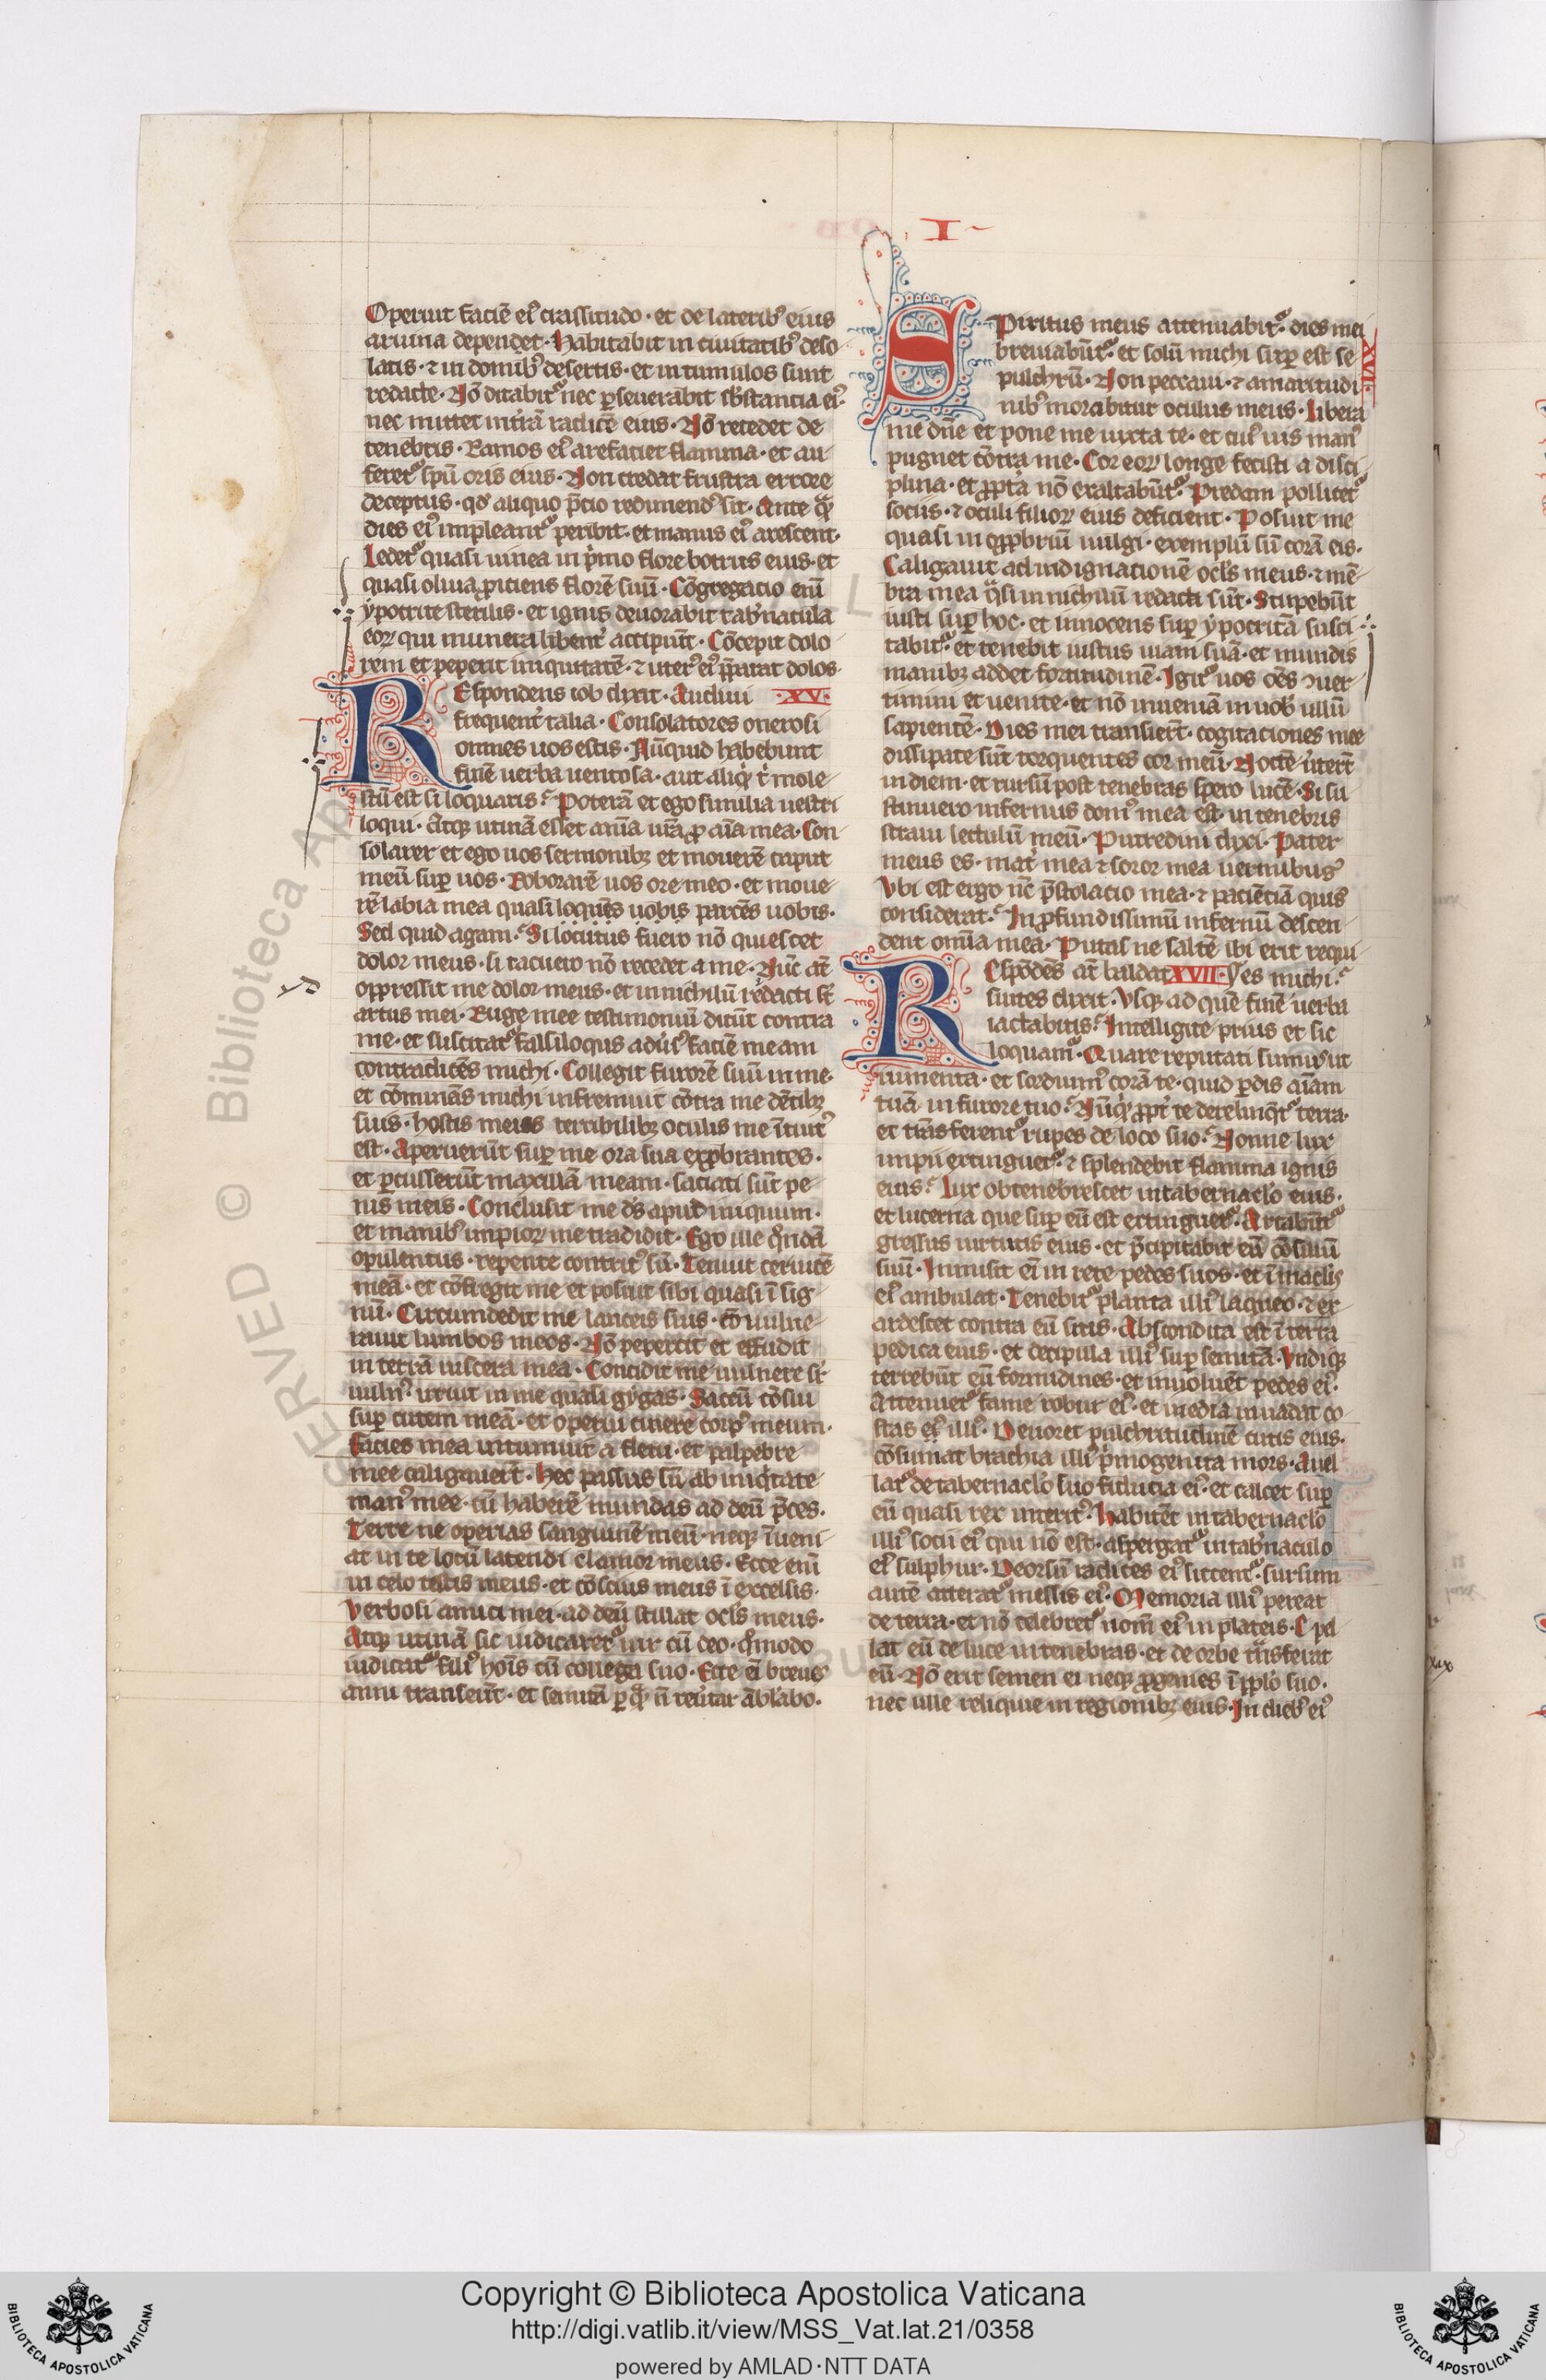 I
Operuit faciē ei᷒ crassitudo · et de laterib᷒ eius
aruina dependet · Habitabit in ciuitatib᷒ deso
latis · ⁊ in domib᷒ desertis · et in tumulos sunt
redacte · Nō ditabit᷑ nec ꝑseuerabit sb̄stancia ei᷒
nec mittet in t̄rā radicē eius · Nō recedet de
tenebris · Ramos ei᷒ arefaciet flamma · et au
feret᷑ spū oris eius · Non credat frustra errore
deceptus · qd̄ aliquo p̄cio redimend᷒ sit · Ante qᷓ
dies ei᷒ impleant᷑ peribit · et manus ei᷒ arescent ·
Ledet᷑ quasi uinea in p̄mo flore botrus eius · et
quasi oliua ꝓiciens florē suū · Cōgregacio enī
ypocrite sterilis · et ignis deuorabit tab̄nacula
eoꝝ qui munera libent̄ accipiūt · Cōcepit dolo
rem et peperit iniquitatē · ⁊ uter᷒ ei᷒ p̄parat dolos ·
REspondens iob dixit · Audiui XV ·
frequent̄ talia · Consolatores onerosi
omnes uos estis · Nūquid habebunt
finē uerba uentosa · aut aliqͥd t̄ mole
stū est si loquaris · Poterā et ego similia uestri
loqui · Atqꝫ utinā esset anīa ur̄a ꝓ aīa mea · Con
solarer et ego uos sermonibꝫ et mouerē caput
meū suꝑ uos · Roborarē uos ore meo · et moue
rē labia mea quasi loquēs uobis parcēs uobis ·
Sed quid agam · Si locutus fuero nō quiescet
dolor meus · si tacuero nō recedet a me · Nūc aūt
oppressit me dolor meus · et in nichilū redacti sūt
artus mei · Ruge mee testimoniū dicūt contra
me · et suscitat᷑ falsiloquus adūs᷒ faciē meam
contradicēs michi · Collegit furorē suū in me ·
et cōminās michi infremuit cōtra me dētibꝫ
suis · hostis meus terribilibꝫ oculis me ītuit᷒
est · Aperuerūt suꝑ me ora sua exꝓbrantes ·
et ꝑcusserūt maxillā meam · saciati sūt pe
nis meis · Conclusit me ds̄ apud iniquum ·
et manib᷒ impioꝝ me tradidit · Ego ille qͦndā
opulentus · repente contrit᷒ sū · Tenuit ceruicē
meā · et cōfregit me et posuit sibi quasi ī sig
nū · Circumdedit me lanceis suis · cōuulne
rauit lumbos meos · Nō pepercit et effudit
in terrā uiscera mea · Concidit me uulnere sr̄
uuln᷒ · irruit in me quasi gygas · Saccū cōsui
suꝑ cutem meā · et operui cinere corp᷒ meum ·
Facies mea intumuit a fletu · et palpebre
mee caligauerūt · Hec passus sū ab iniqͥtate
man᷒ mee · cū haberē mundas ad deū p̄ces ·
Terre ne operias sanguinē meū · neqꝫ īueni
at in te locū latendi clamor meus · Ecce enī
in celo testis meus · et cōscius meus ī excelsis ·
Verbosi amici mei · ad deū stillat ocls̄ meus ·
Atqꝫ utinā sic iudicaret᷑ uir cū deo · qͦmodo
iudicat᷑ fili᷒ hoīs cū collega suo · Ecce eī breues
anni transeūt · et semitā ꝑ qᷓ n̄ reūtar ābl̄abo ·
SPiritus meus attenuabit᷑ · dies mei XVI ·
breuiabūt᷑ · et solū michi suꝑ est se
pulchrū · Non peccaui · ⁊ amaritudi
nib᷒ morabitur oculus meus · Libera
me dn̄e et pone me iuxta te · et cui᷒ uis man᷒
pugnet cōtra me · Cor eoꝝ longe fecisti a disci
plina · et ꝓpt̄a nō exaltabūt᷑ · Predam pollicet᷑
sociis · ⁊ oculi filioꝝ eius deficient · Posuit me
quasi in ꝓꝓbriū uulgi · exemplū sū corā eis ·
Caligauit ad indignationē ocls̄ meus · ⁊ mē
bra mea qͣsi in nichilū redacta sūt · Stupebūt
iusti suꝑ hoc · et innocens suꝑ ypocritā susci
tabit᷑ · et tenebit iustus uiam suā · et mundis
manibꝫ addet fortitudinē · Igit᷑ uos oēs ꝯuer
timini et uenite · et nō inueniā in uob᷒ ullū
sapientē · Dies mei transierūt · cogitaciones mee
dissipate sūt torquentes cor meū · Noctē ūterūt
in diem · et rursū post tenebras spero lucē · Si su
stinuero infernus dom᷒ mea est · in tenebris
straui lectulū meū · Putredini dixi · Pater
meus es · mat̄ mea ⁊ soror mea uermibus
Vbi est ergo nūc p̄stolacio mea · ⁊ paciēciā quis
considerat · In ꝓfundissimū infernū descen
dent omīa mea · Putas ne saltē ibi erit requi
REspōdēs aūt baldat XVII · es michi ·
suites dixit · Vsqꝫ ad quē finē uerba
iactabitis · Intelligite prius et sic
loquam᷑ · Quare reputati sumus ut
iumenta · et sorduim᷒ corā te · quid ꝑdis aīam
tuā in furore tuo · Nūqͥd ꝓpt̄ te derelinqͣt᷑ terra ·
et transferent᷑ rupes de loco suo · Nonne lux
impii extinguet᷑ · ⁊ splendebit flamma ignis
eius · Lux obtenebrescet in tabernaclo eius ·
et lucerna que suꝑ eū est extinguet᷑ · Artabūt᷑
gressus uirtutis eius · et p̄cipitabit eū cōsiliū
suū · Inmisit eī in rete pedes suos · et ī maclis
ei᷒ ambulat · Tenebit᷑ planta illi᷒ laqueo · ⁊ ex
ardescet contra eū sitis · Abscondita est ī terra
pedica eius · et decipula illi᷒ suꝑ semitā · Vndiqꝫ
terrebūt eū formidines · et inuoluēt pedes ei᷒ ·
Attenuet᷑ fame robur ei᷒ · et inedia inuadat co
stas ei᷒ illi᷒ · Deuoret pulchritudinē cutis eius ·
cōsumat brachia illi᷒ p̄mogenita mors · Auel
lat᷑ de tabernaclo suo fiducia ei᷒ · et calcet suꝑ
eū quasi rex interit᷒ · Habitēt in tabernaclo
illi᷒ socii ei᷒ qui nō est · aspergat᷑ in tab̄naculo
ei᷒ sulphur · Deorsū radices ei᷒ siccent᷑ · sursum
autē atterat᷑ messis ei᷒ · Memoria illi᷒ pereat
de terra · et nō celebret᷑ nom̄ ei᷒ in plateis · Expel
lat eū de luce in tenebras · et de orbe tͣnsferat
eū · Nō erit semen ei neqꝫ ꝓgenies ī ppl̄o suo ·
nec ulle reliquie in regionibꝫ eius · In dieb᷒ ei᷒
© Biblioteca
Copyright © Biblioteca Apostolica Vaticana
http://digi.vatlib.it/view/MSS_Vat.lat.21/0358
powered by AMLAD·NTT DATA
BIBLIOTECA APOSTOLICA VATICANA
BIBLIOTECA APOSTOLICA VATICANA